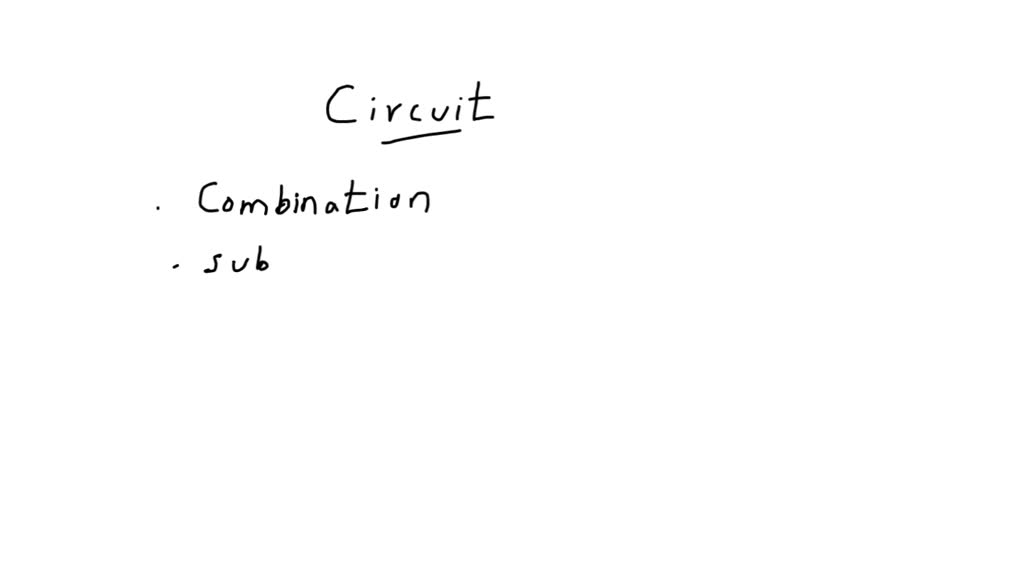 Circuit
. Combination
. sub